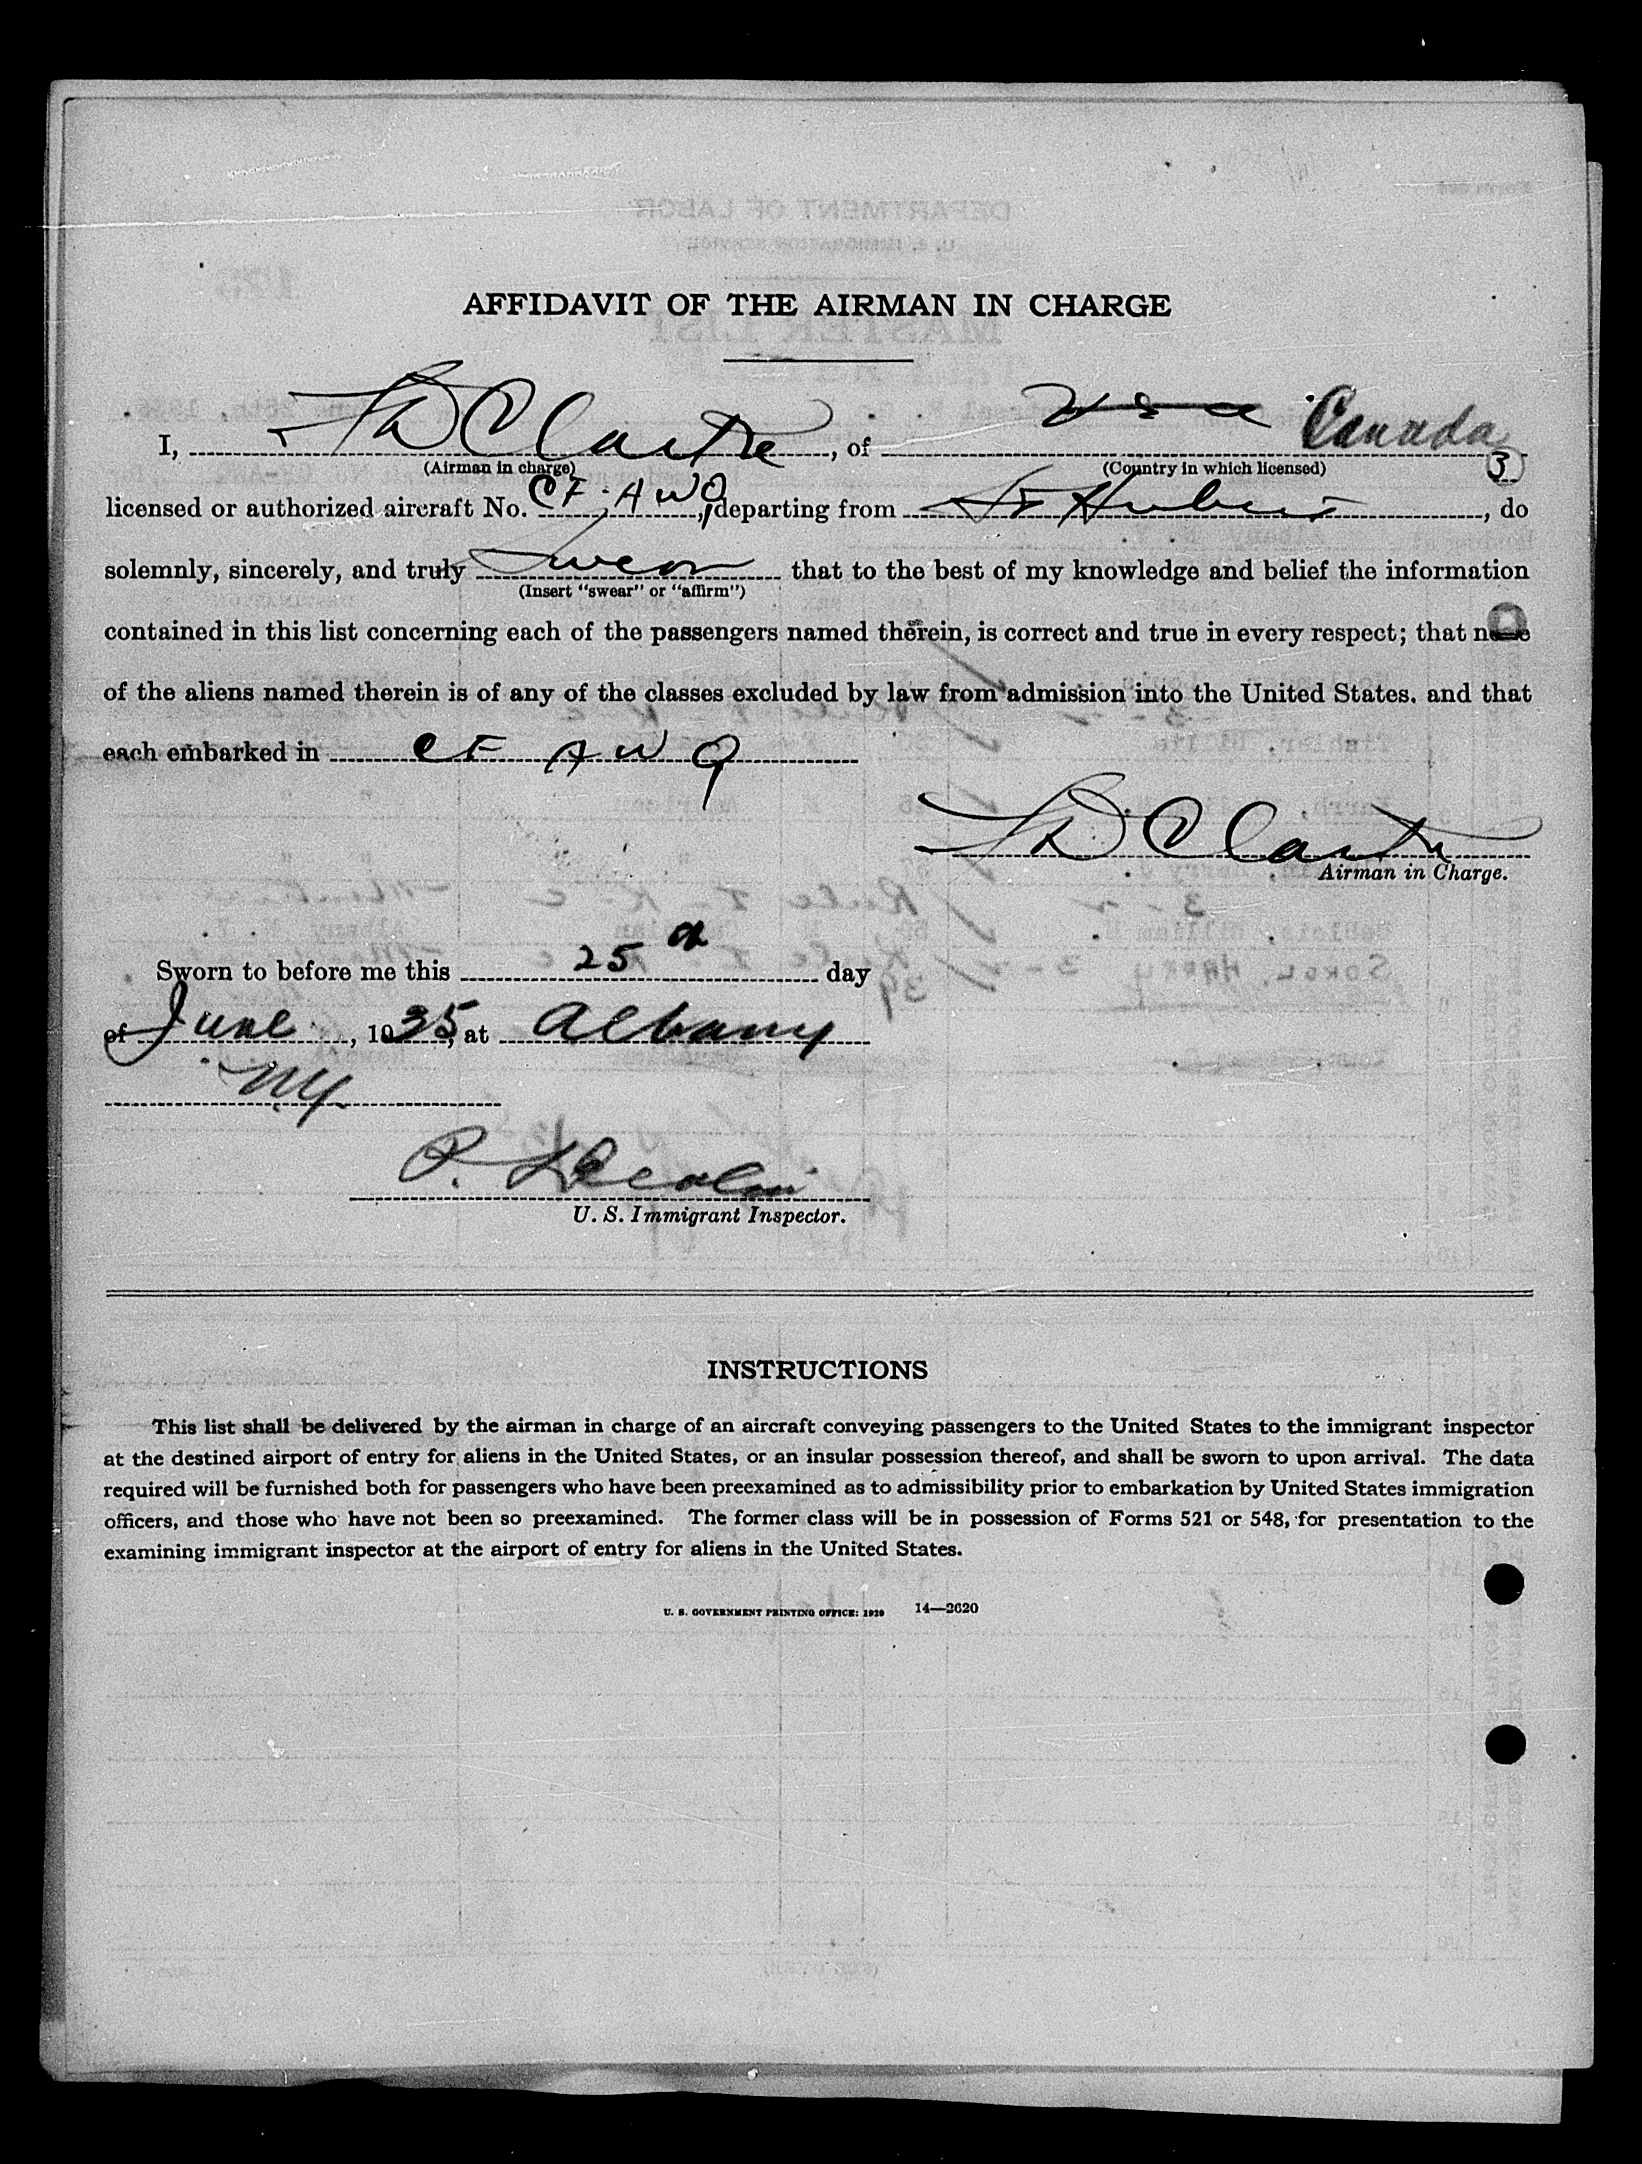 AFFIDAVIT OF THE AIRMAN IN CHARGE
I, D Clarke, of U S A Canada
(Airman in charge) (Country in which licensed) 3
licensed or authorized aircraft No. CF-AWQ, departing from St Hubert, do
solemnly, sincerely, and truly Swear that to the best of my knowledge and belief the information
(Insert "swear" or "affirm")
contained in this list concerning each of the passengers named therein, is correct and true in every respect; that none
of the aliens named therein is of any of the classes excluded by law from admission into the United States. and that
each embarked in CF AWQ
D Clarke
Airman in Charge.
Sworn to before me this 25 day
of June, 1935, at Albany
N.Y.
P.
U. S. Immigrant Inspector.
INSTRUCTIONS
This list shall be delivered by the airman in charge of an aircraft conveying passengers to the United States to the immigrant inspector
at the destined airport of entry for aliens in the United States, or an insular possession thereof, and shall be sworn to upon arrival. The data
required will be furnished both for passengers who have been preexamined as to admissibility prior to embarkation by United States immigration
officers, and those who have not been so preexamined. The former class will be in possession of Forms 521 or 548, for presentation to the
examining immigrant inspector at the airport of entry for aliens in the United States.
U. S. GOVERNMENT PRINTING OFFICE: 1929 14—2620